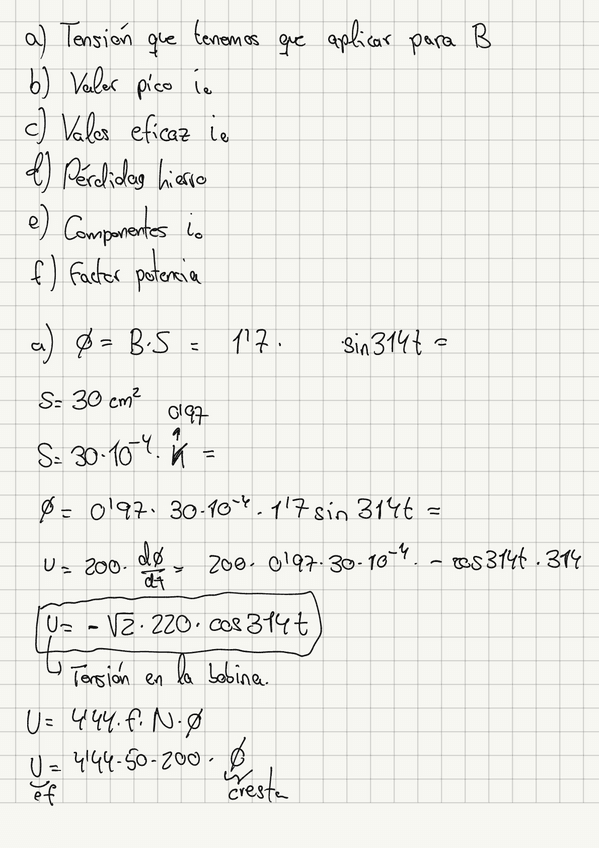 a) Tensión que tenemos que aplicar para B
b) Valor pico i₀
c) Valor eficaz i₀
d) Pérdidas hierro
e) Componentes i₀
f) Factor potencia
a) ϕ = B·S = 1'7· sin 314t =
S= 30 cm²
0'97
S= 30·10⁻⁴· K =
ϕ= 0'97· 30·10⁻⁴·1'7 sin 314t =
U = 200· dϕ/dt = 200· 0'97·30·10⁻⁴· - cos 314t · 314
U= -√2·220·cos 314t
↳ Tensión en la bobina.
U= 4'44·f·N·ϕ
U= 4'44·50·200· ϕ
ef cresta